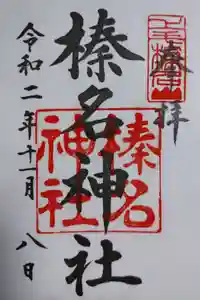 奉拝
榛名神社
榛名
神社
令和二年十一月八日